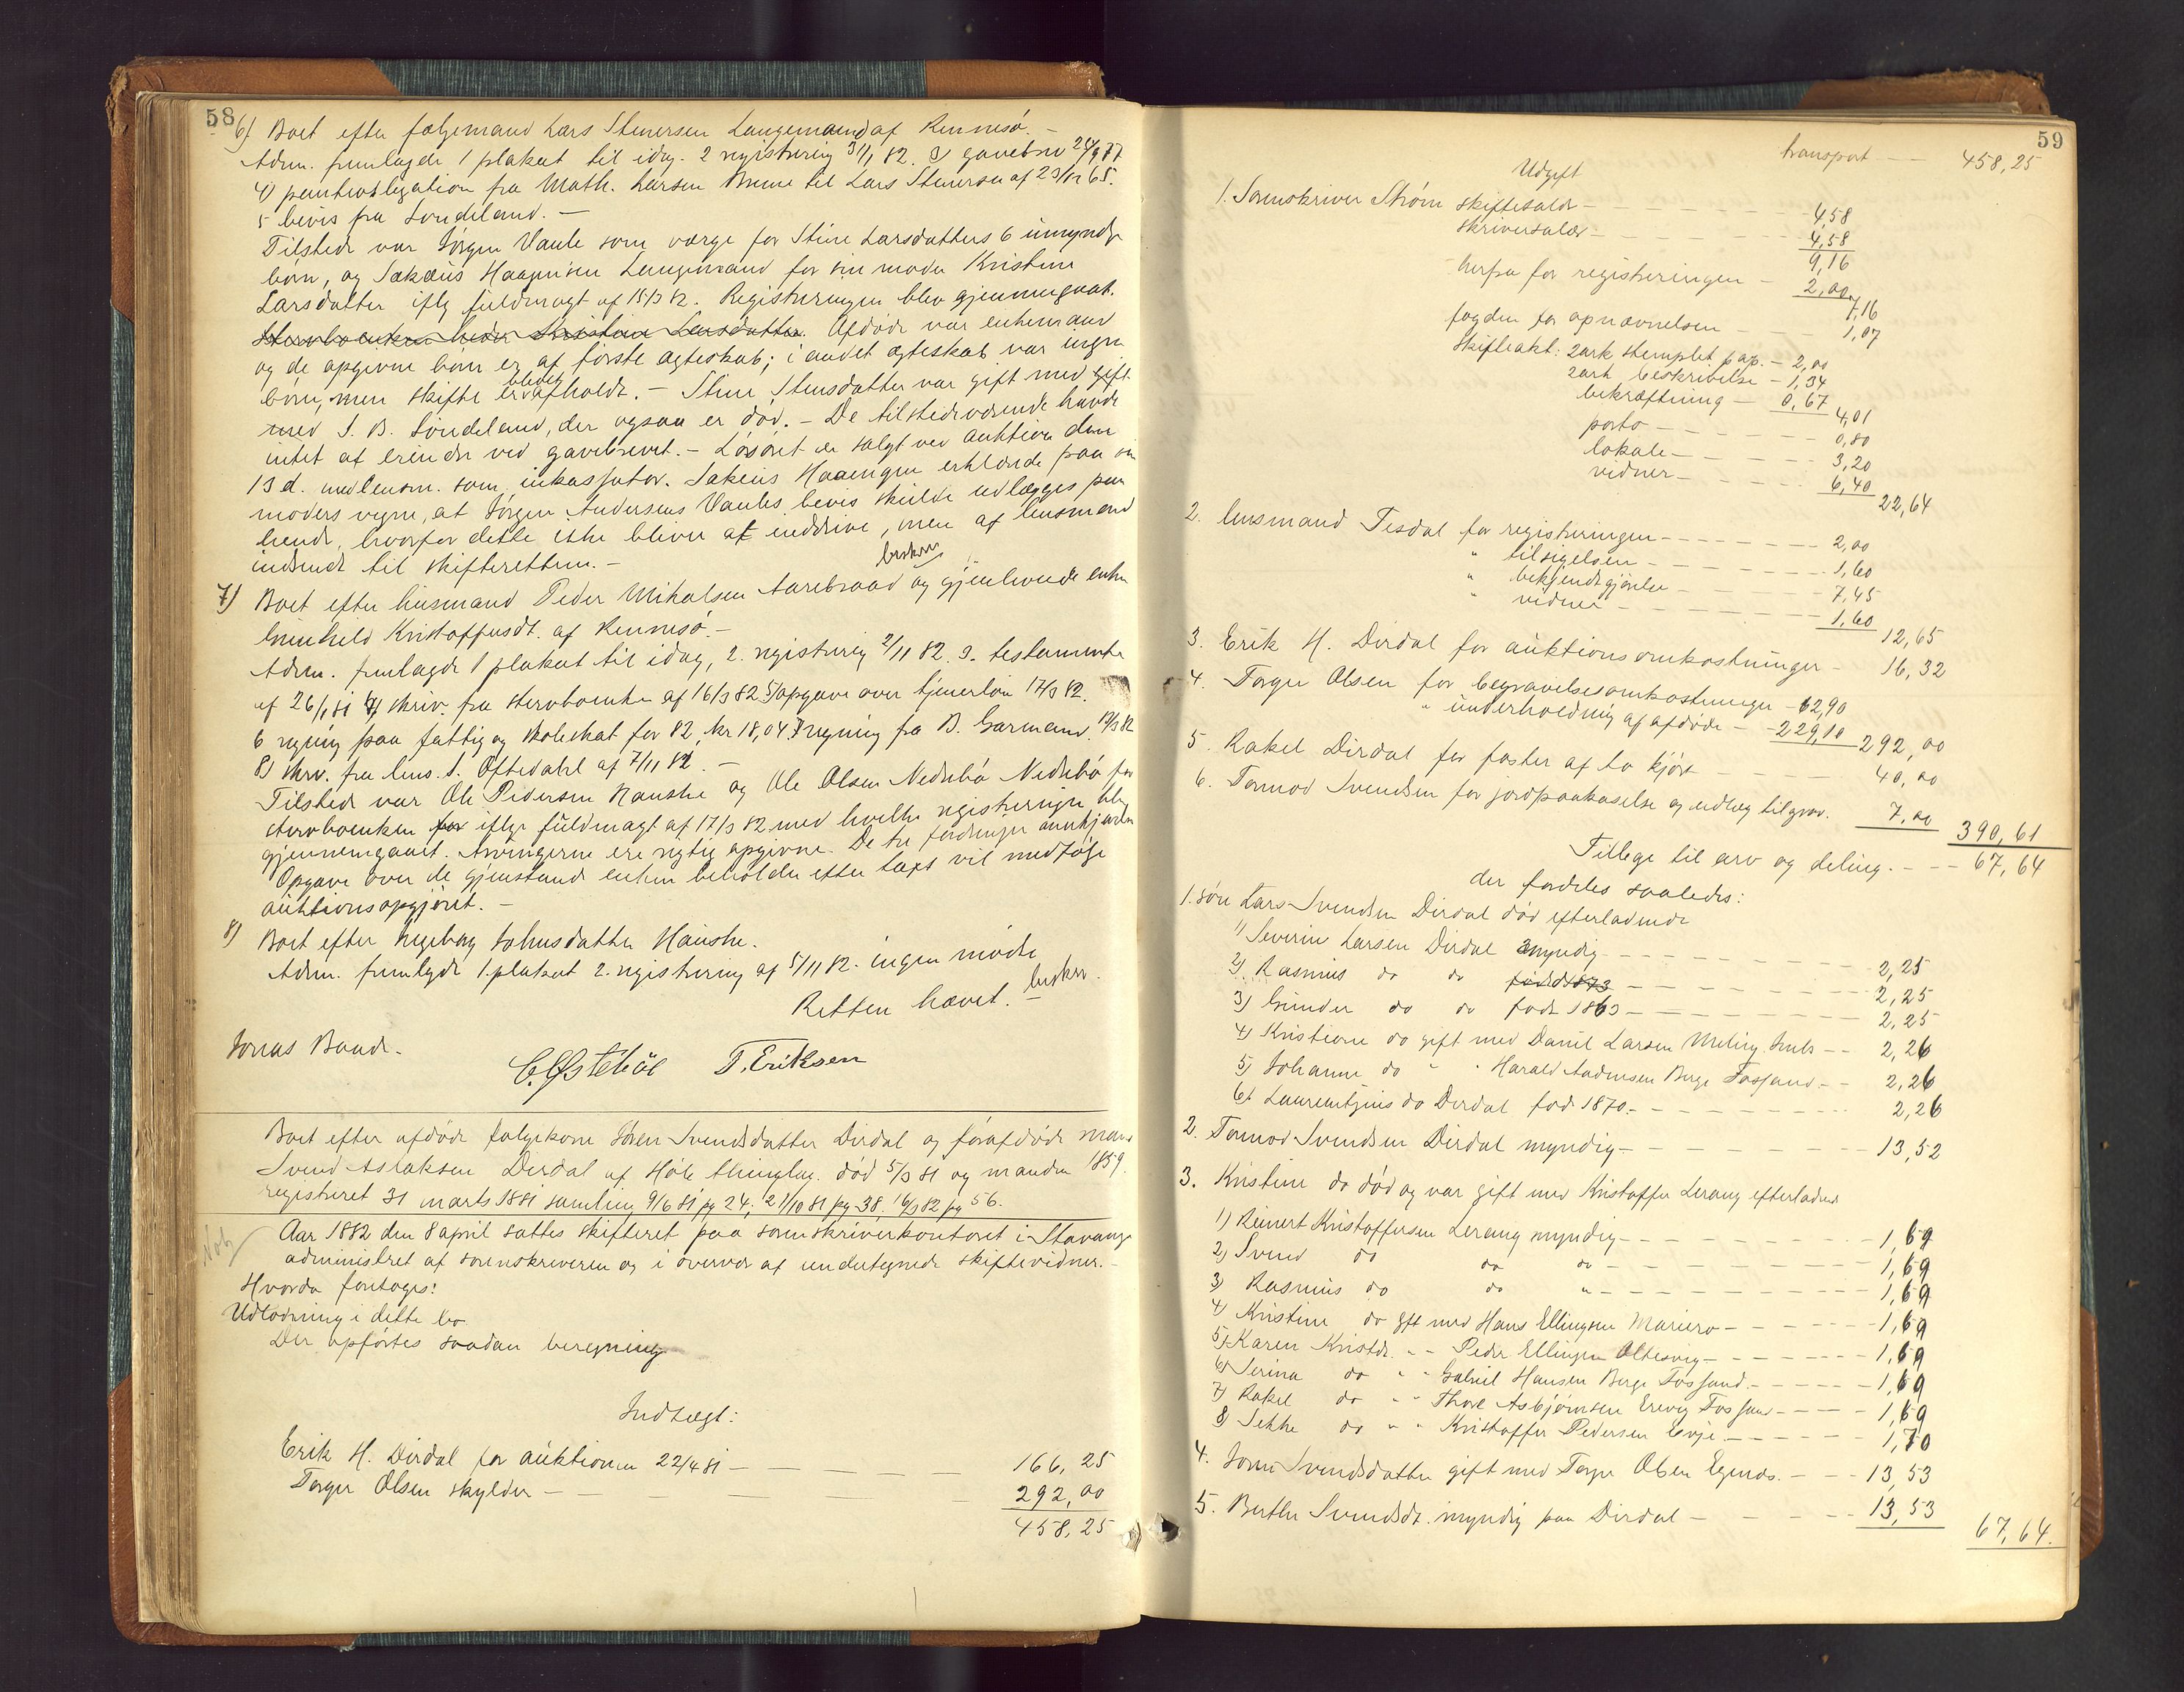 58
6) Boet efter følgemand Lars Stenersen Langemand af Rennesö. –
Adm. fremlagde 1 plakat til idag. 2 registrering 3/1 82. 3) gavebrev 24/9 77
4) panteobligation fra Math. Larsen Brune til Lars Stenersen af 23/12 65.
5 bevis fra Söndeland. –
Tilstede var Jörgen Vaule som værge for Stine Larsdatters 6 umyndge
börn, og Sakæus Haagensen Langemand for sin moder Kristine
Larsdatter iflg fuldmagt af 15/3 82. Registreringen blev gjennemgaaet.
Stervboenken heder Kristine Larsdatter. Afdöde var enkemand
og de opgivne börn er af förste ægteskab; i andet ægteskab var ingen
börn, men skifte er blevet afholdt. – Stine Stensdatter var gift med gift
med S. B. Söndeland, der ogsaa er död. – De tilstedeværende havde
intet at erindre ved gavebrevet. – Lösöret er solgt ved auktion den
13 d. med lensm. som inkassator. Sakeus Haaengen erklærede paa sin
moders vegne, at Jörgen Andersens Vaules bevis skulde udlægges paa
hende, hvorfor dette ikke bliver at inddrive, men af lensmand
indsendt til skifteretten. –
beskrev
7) Boet efter husmand Peder Mikalsen Aarebraad og gjenlevende enke
Gunhild Kristoffersdt. af Rennesö. –
Adm. fremlagde 1 plakat til idag, 2. registrering 2/11 82. 3. testamente
af 26/1 81 4) skriv. fra stervboenken af 16/3 82 5) opgave over tjenerlön 17/3 82.
6 regning paa fattig og skoleskat for 82, kr 18,04 7 regning fra B. Garmann 13/3 82
8) skrv. fra lens. S. Oftedahl af 7/11 82. –
Tilstede var Ole Pedersen Hauske og Ole Olsen Nedrebö Nedrebö for
stervboenken for iflge fuldmagt af 17/3 82 med hvilke registreringen blev
gjennemgaaet. Arvingerne ere rigtig opgivne. De tre fordringer anerkjendes
Opgave over de gjenstande enken beholder efter taxt vil medfölge
auktionsopgjöret. –
8) Boet efter Ingeborg Johnsdatter Hauske.
Adm. fremlagde 1. plakat 2. registrering af 5/11 82. ingen mödte
beskrv.
Retten hævet. –
Jonas Bande.
C. Østeböe T. Eriksen
Boet efter afdöde følgekone Sören Svendsdatter Dirdal og förafdöde mand
Svend Aslaksen Dirdal af Höle thinglag. död 5/3 81 og manden 1859.
registreret 31 marts 1881 samling 9/6 81 pg 24; 21/10 81 pg 38, 16/3 82 pg 56.
Aar 1882 den 8 april sattes skifteret paa sorenskriverkontoret i Stavange
Not
administret af sorenskriveren og i overvær af undertegnede skiftevidner. –
Hvorda foretoges:
Udlodning i dette bo
Der opförtes saadan beregning
Indtægt:
Erik H. Dirdal for auktionen 22/4 81 – 166,25
Torger Olsen skylder – 292,00
458,25
59
transport – 458,25
Udgift
1. Sorenskriver Ström skiftesalær – 4,58
skriversalær – 4,58
9,16
herfra for registreringen – 2,00
7,16
fogden for opnævnelsen – 1,07
skifteakt: 2 ark stemplet pap. – 2,00
2 ark beskrivelse – 1,34
bekræftning – 0,67
4,01
porto – 0,80
lokale – 3,20
vidner – 6,40
22,64
2. lensmand Tesdal for registreringen – 2,00
" tilsigelsen – 1,60
" bekjendtgjörelse – 7,45
" vidner – 1,60
12,65
3. Erik H. Dirdal for auktionsomkostninger – 16,32
4. Torger Olsen for begravelsesomkostninger – 62,90
" underholdning af afdöde – 229,10 292,00
5. Rakel Dirdal for foster af to kjör – 40,00
6. Tormod Svendsen for jordpaakastelse og udlæg til grav. 7,00
390,61
Tillege til arv og deling. – 67,64
der fordeles saaledes:
1. sön Lars Svendsen Dirdal död efterladende
1) Severin Larsen Dirdal myndig – 2,25
2) Rasmus do do födt 1873 – 2,25
3) Gunder do do födt 1863 – 2,25
4) Kristiane do gift med Daniel Larsen Meling – 2,26
5) Johanne do " " Harald Aadnesen Berge Fossand – 2,26
6) Laurentzius do Dirdal fød 1870 – 2,26
2. Tormod Svendsen Dirdal myndig – 13,52
3. Kristine do död og var gift med Kristoffer Lerang efterladend
1) Reinert Kristoffersen Lerang myndig – 1,69
2) Svend do do do – 1,69
3) Rasmus do do " – 1,69
4) Kristine do gft med Hans Ellingsen Mariero – 1,69
5) Karen Kristdt. – – Peder Ellingsen Oltesvig – 1,69
6) Serina do " " Gabriel Hansen Berge Fossand – 1,69
7) Rakel do " " Thore Asbjörnsen Erevig Fossand – 1,69
8) Sekke do " " Kristoffer Pedersen Evje – 1,70
4. Sören Svendsdatter gift med Torger Olsen Egenes. – 13,53
5. Berthe Svendsdt. myndig paa Dirdal – 13,53
67,64.